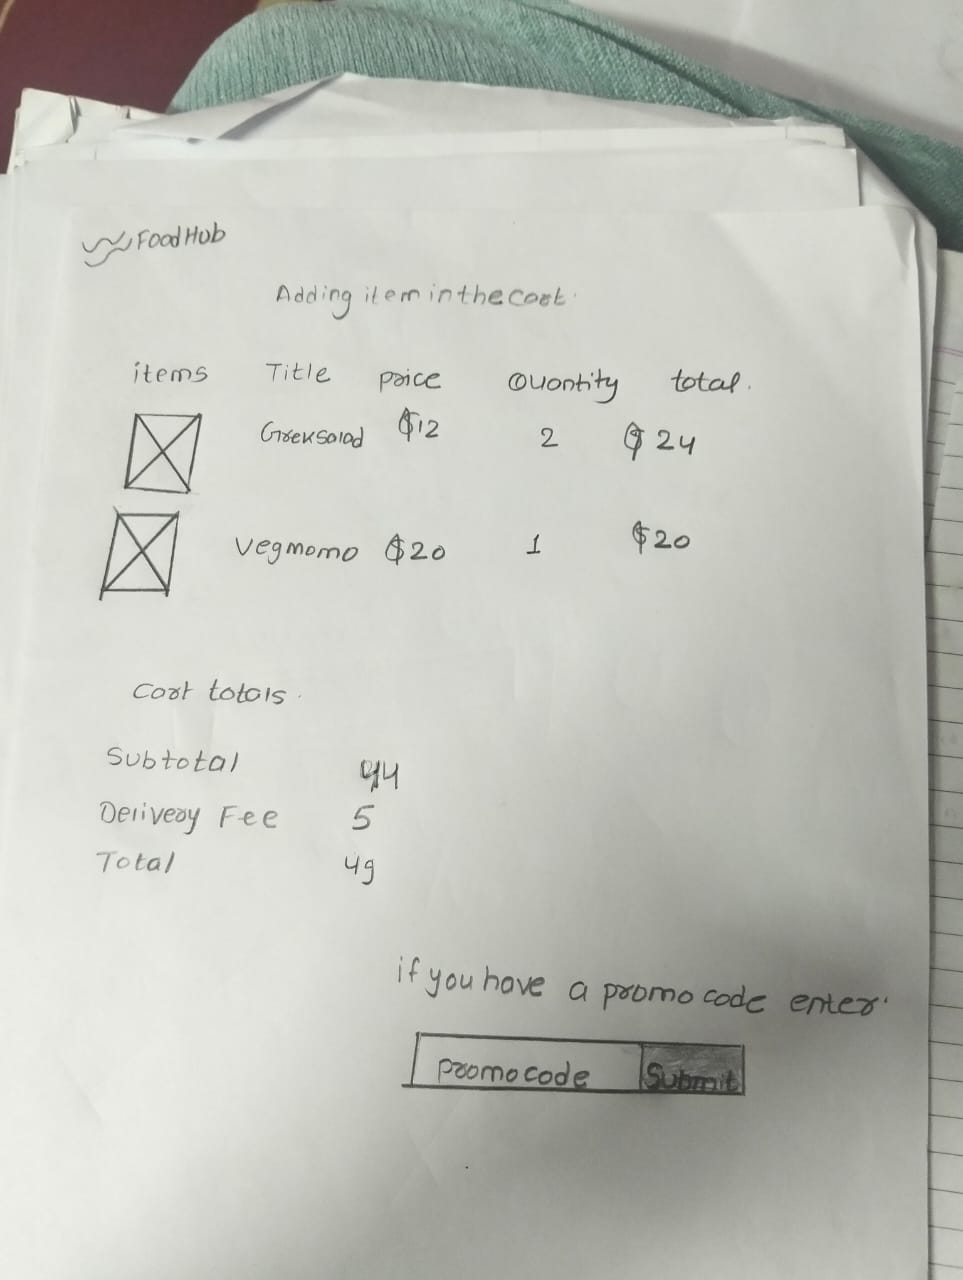 FoodHub
Adding item in the cart.
items Title price Quantity total.
Greek salad $12 2 $24
veg momo $20 1 $20
Cart totals.
Subtotal 44
Delivery Fee 5
Total 49
if you have a promo code enter.
promo code Submit